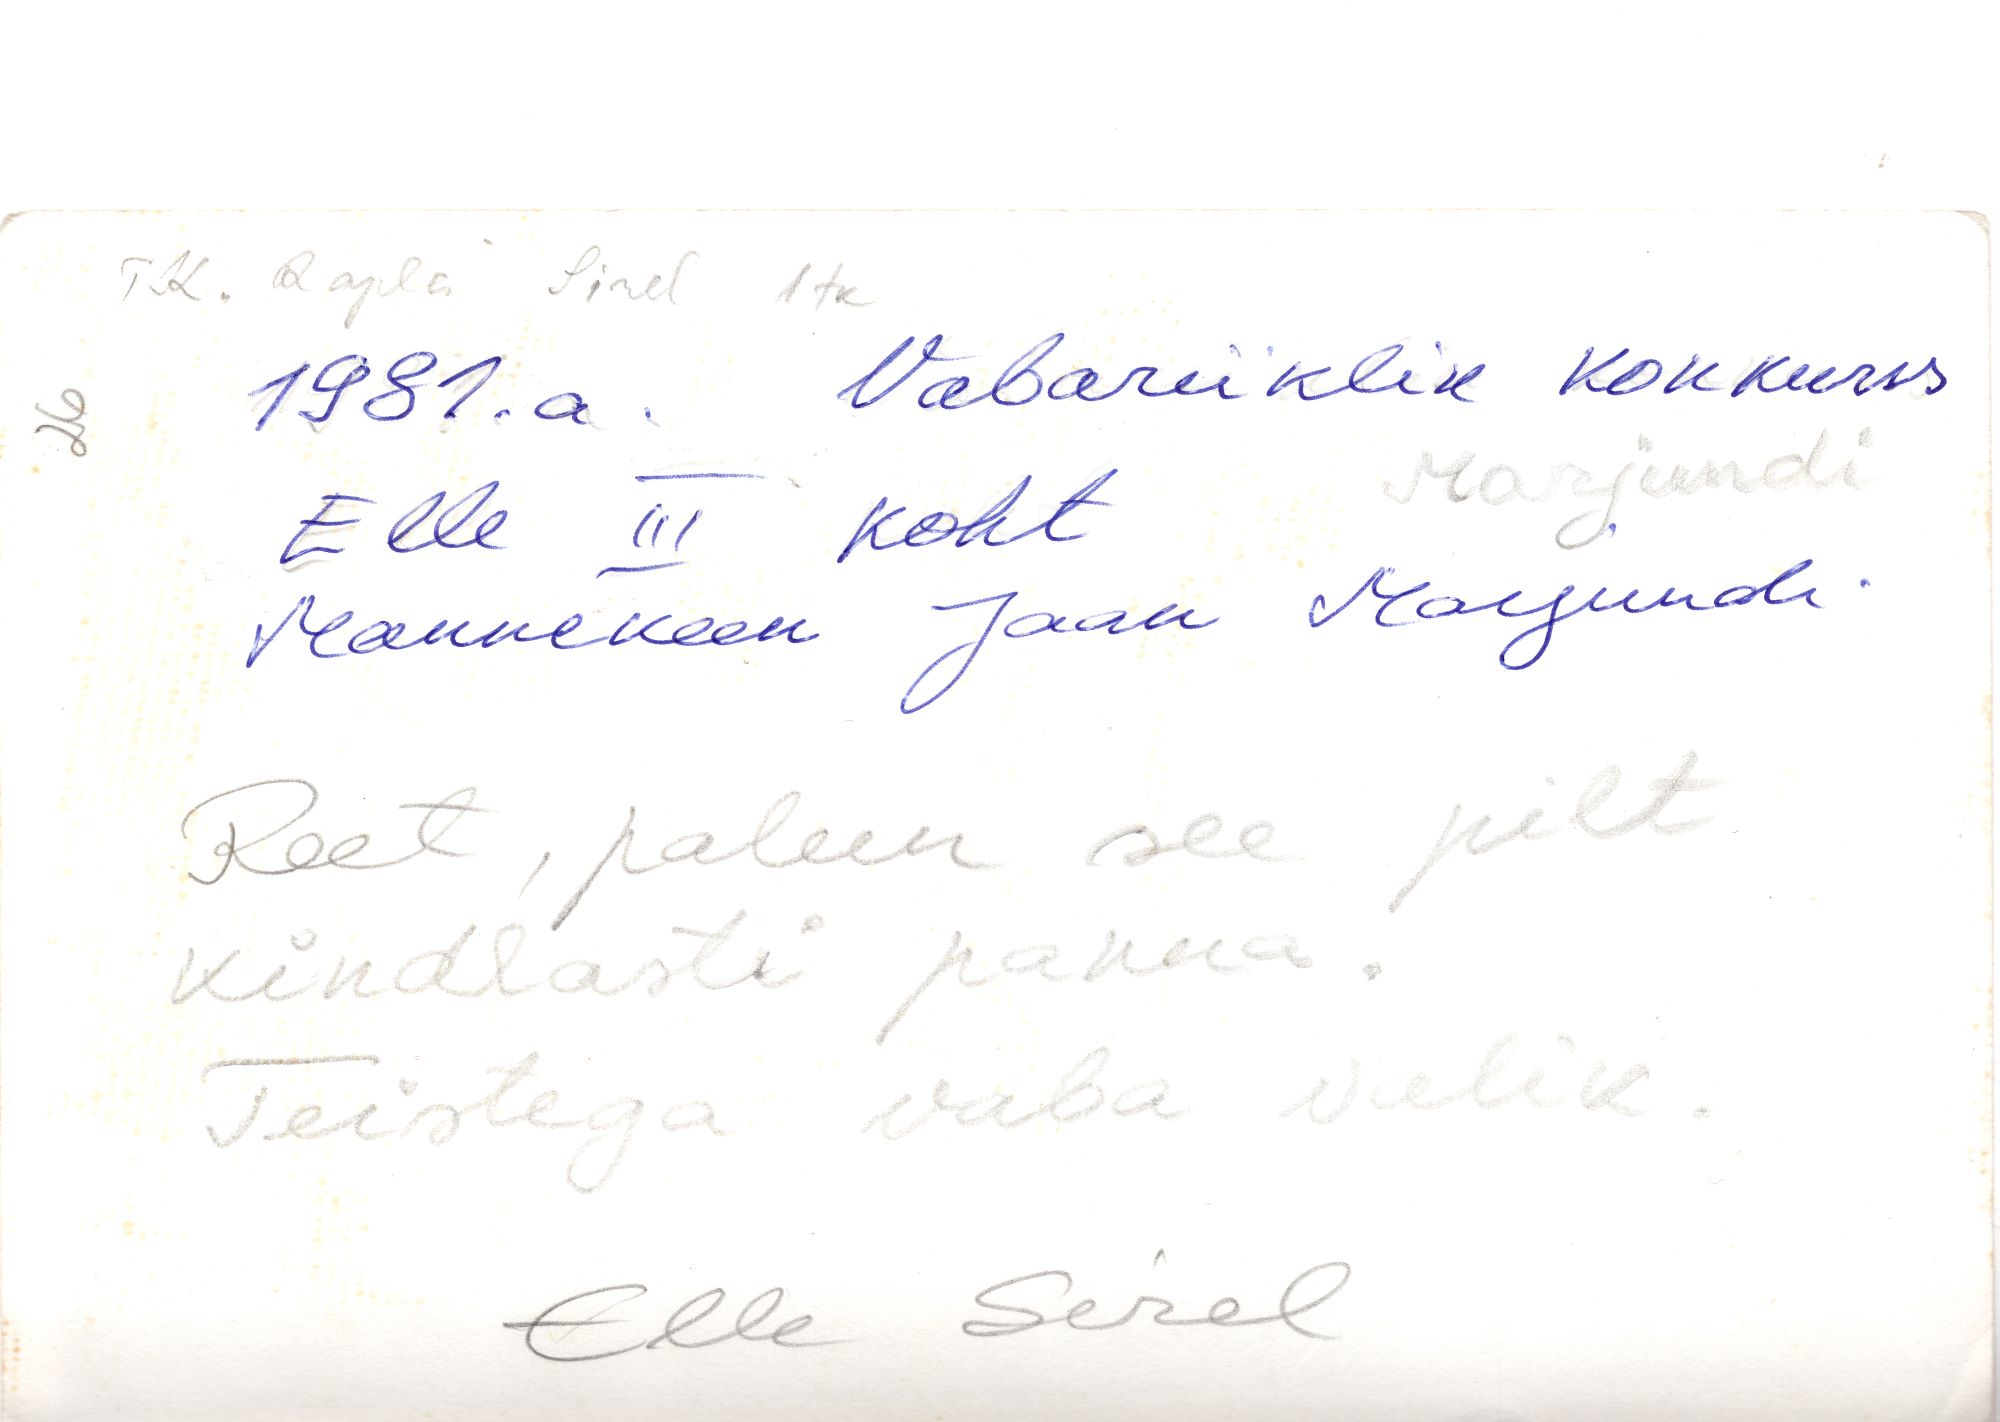 TK. Rapla Sirel 1tk
26
1981.a. Vabariiklik konkurss
Marjundi
Elle III koht
Mannekeen Jaan Marjundi.
Reet, palun see pilt
kindlasti panna.
Teistega vaba valik.
Elle Sirel